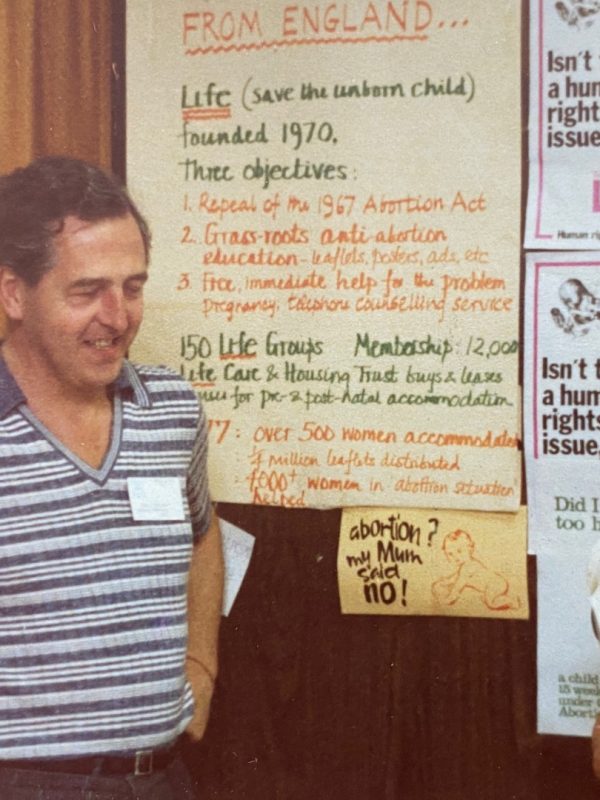 FROM ENGLAND...
Life (save the unborn child)
founded 1970.
Three objectives:
1. Repeal of the 1967 Abortion Act
2. Grass-roots anti-abortion
education - leaflets, posters, ads, etc
3. Free, immediate help for the problem
pregnancy, telephone counselling service
150 Life Groups Membership: 12,000
Life Care & Housing Trust buys & leases
for pre- & post-natal accommodation
77: over 500 women accommodated
million leaflets distributed
women in abortion situation
helped
abortion?
my Mum
said
no!
Isn't
a hum
rights
issue
Human
Isn't t
a hum
rights
issue
Did I
too
a child
15
under
Aborti